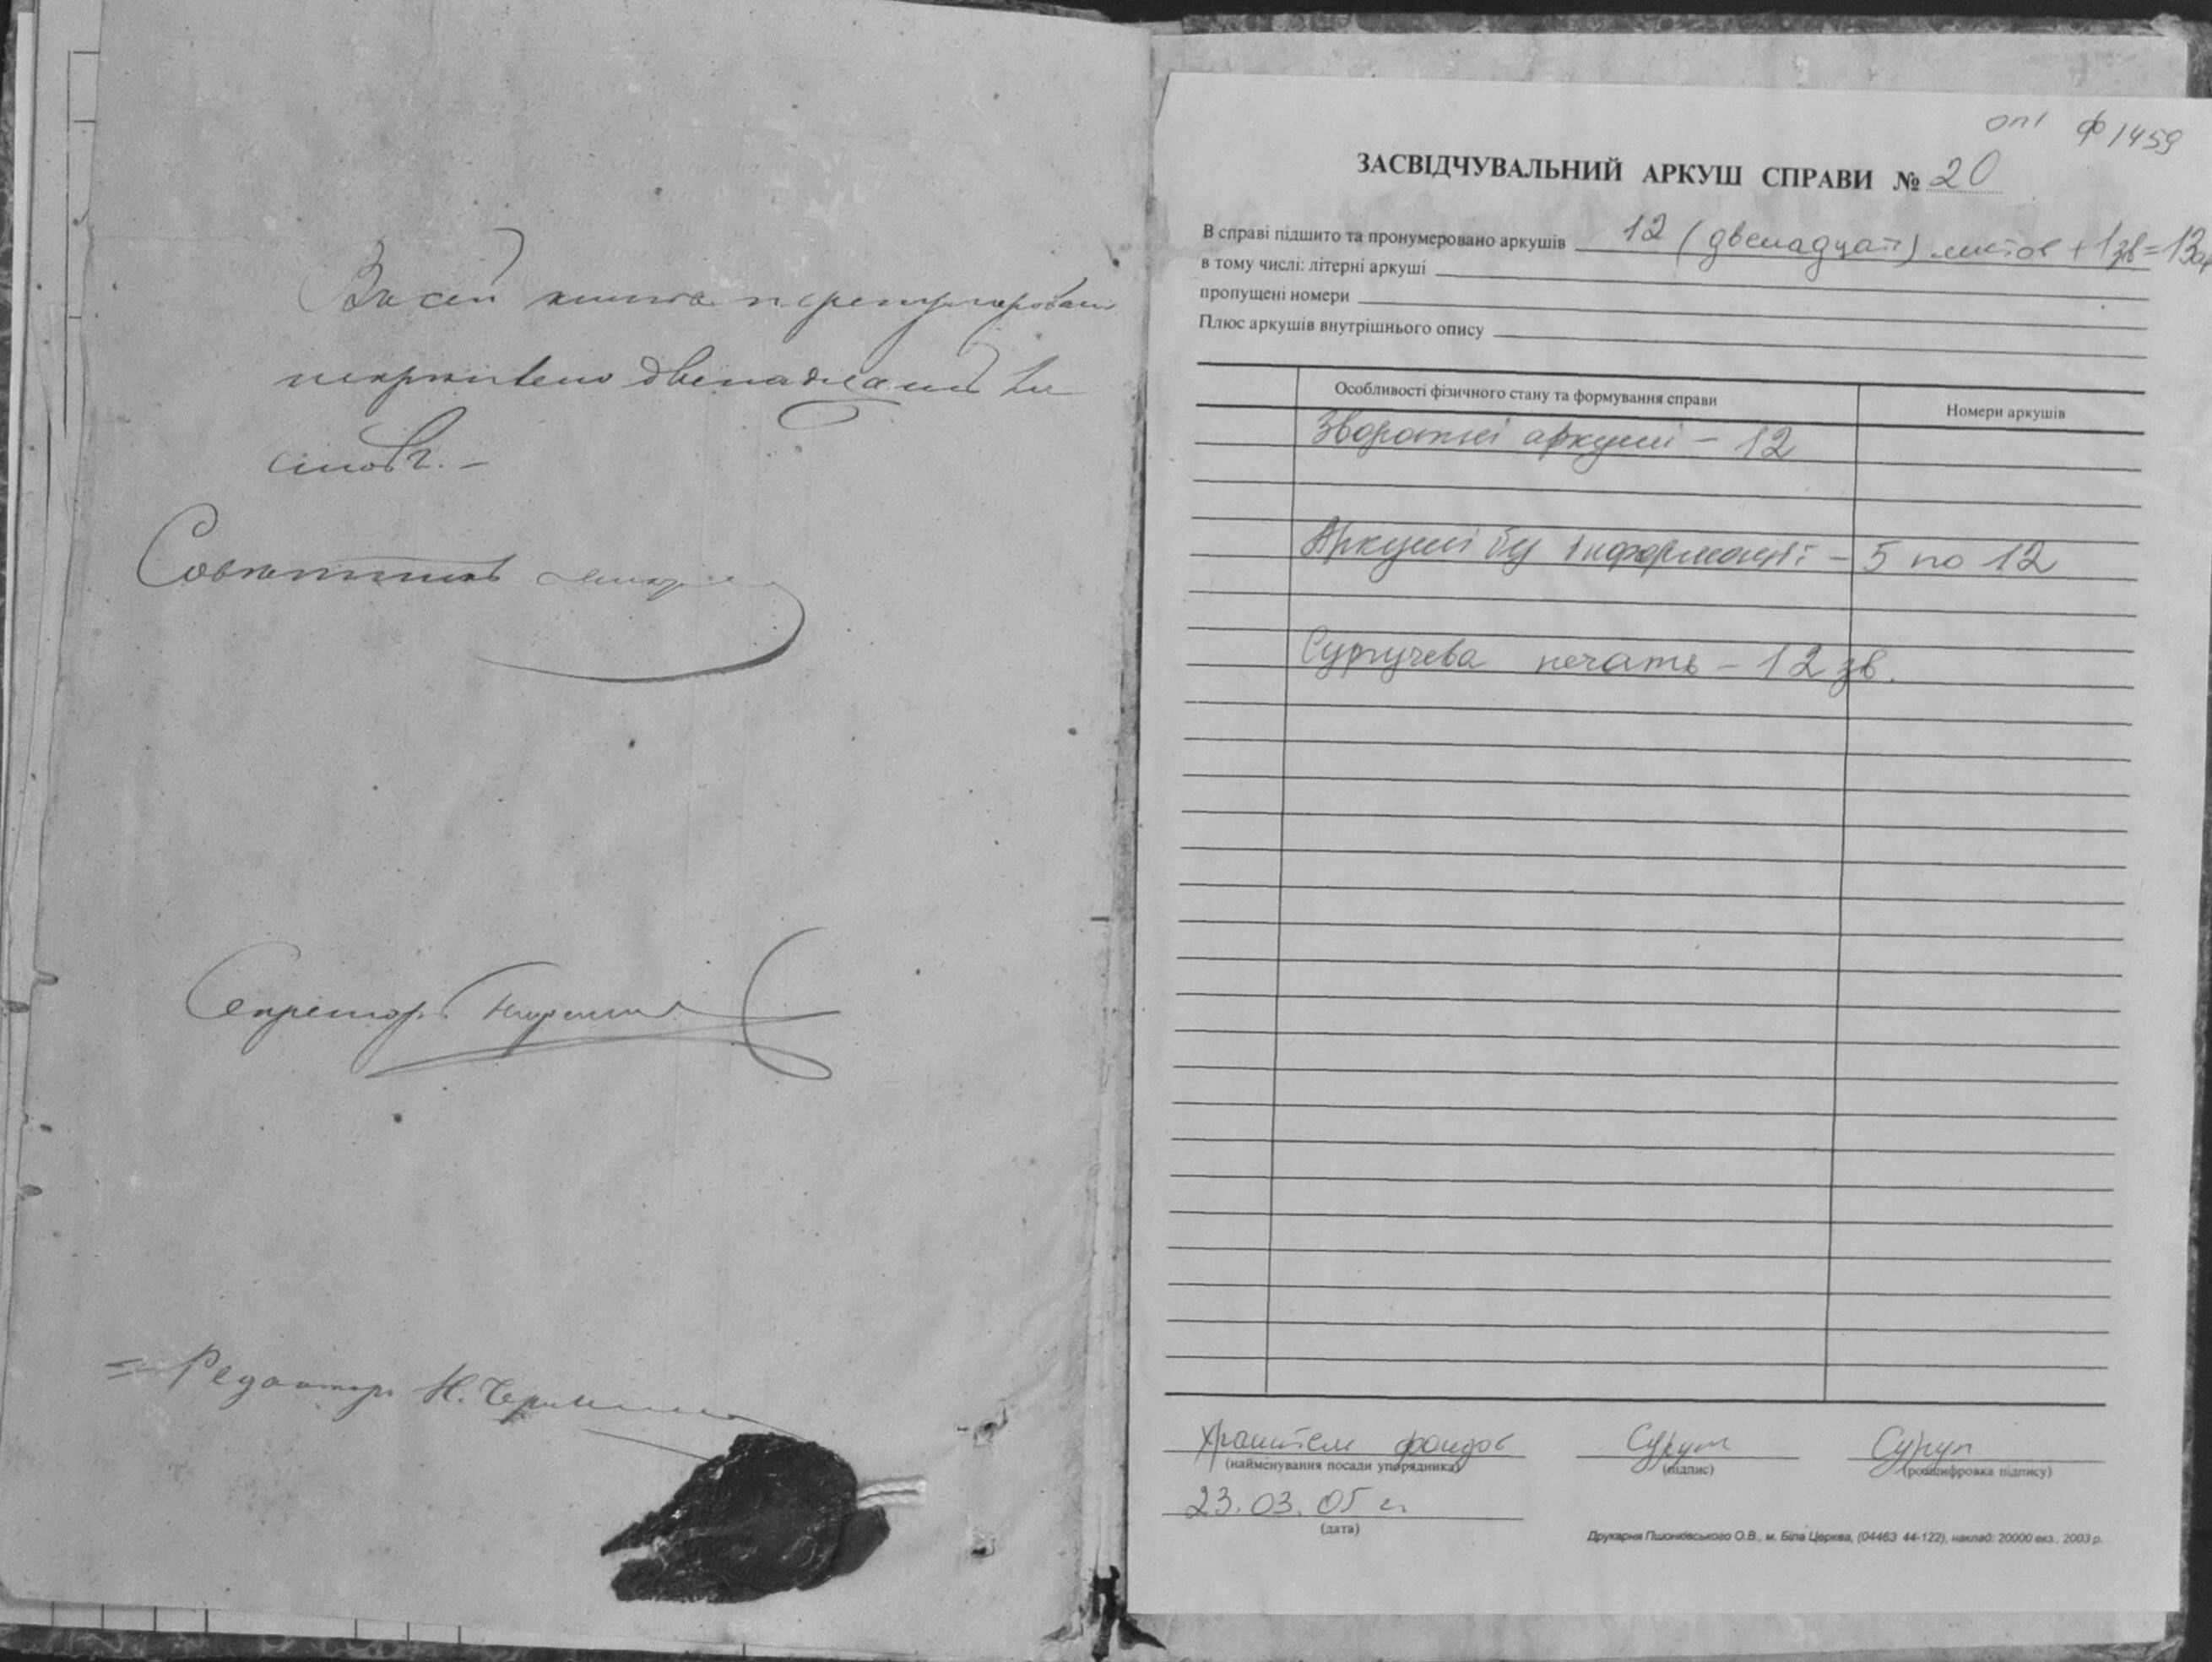 В сей книге перенумеровано
и скреплено двенадцать ли
стовъ. –
Советникъ
Секретарь
Редакторъ Н.
оп1 ф 1459
ЗАСВІДЧУВАЛЬНИЙ АРКУШ СПРАВИ № 20
В справі підшито та пронумеровано аркушів 12 (двенадцат) листов + 1зв = 13а
в тому числі: літерні аркуші
пропущені номери
Плюс аркушів внутрішнього опису
Особливості фізичного стану та формування справи
Номери аркушів
Зворотні аркуші – 12
Аркуші бу інформації – 5 по 12
Сургучева печать – 12 зв.
Хранитель фондов
(найменування посади упорядника)
(підпис)
(розшифровка підпису)
23.03.05 г.
(дата)
Друкарня Пшонківського О.В., м. Біла Церква, (04463 44-122), наклад: 20000 екз., 2003 р.